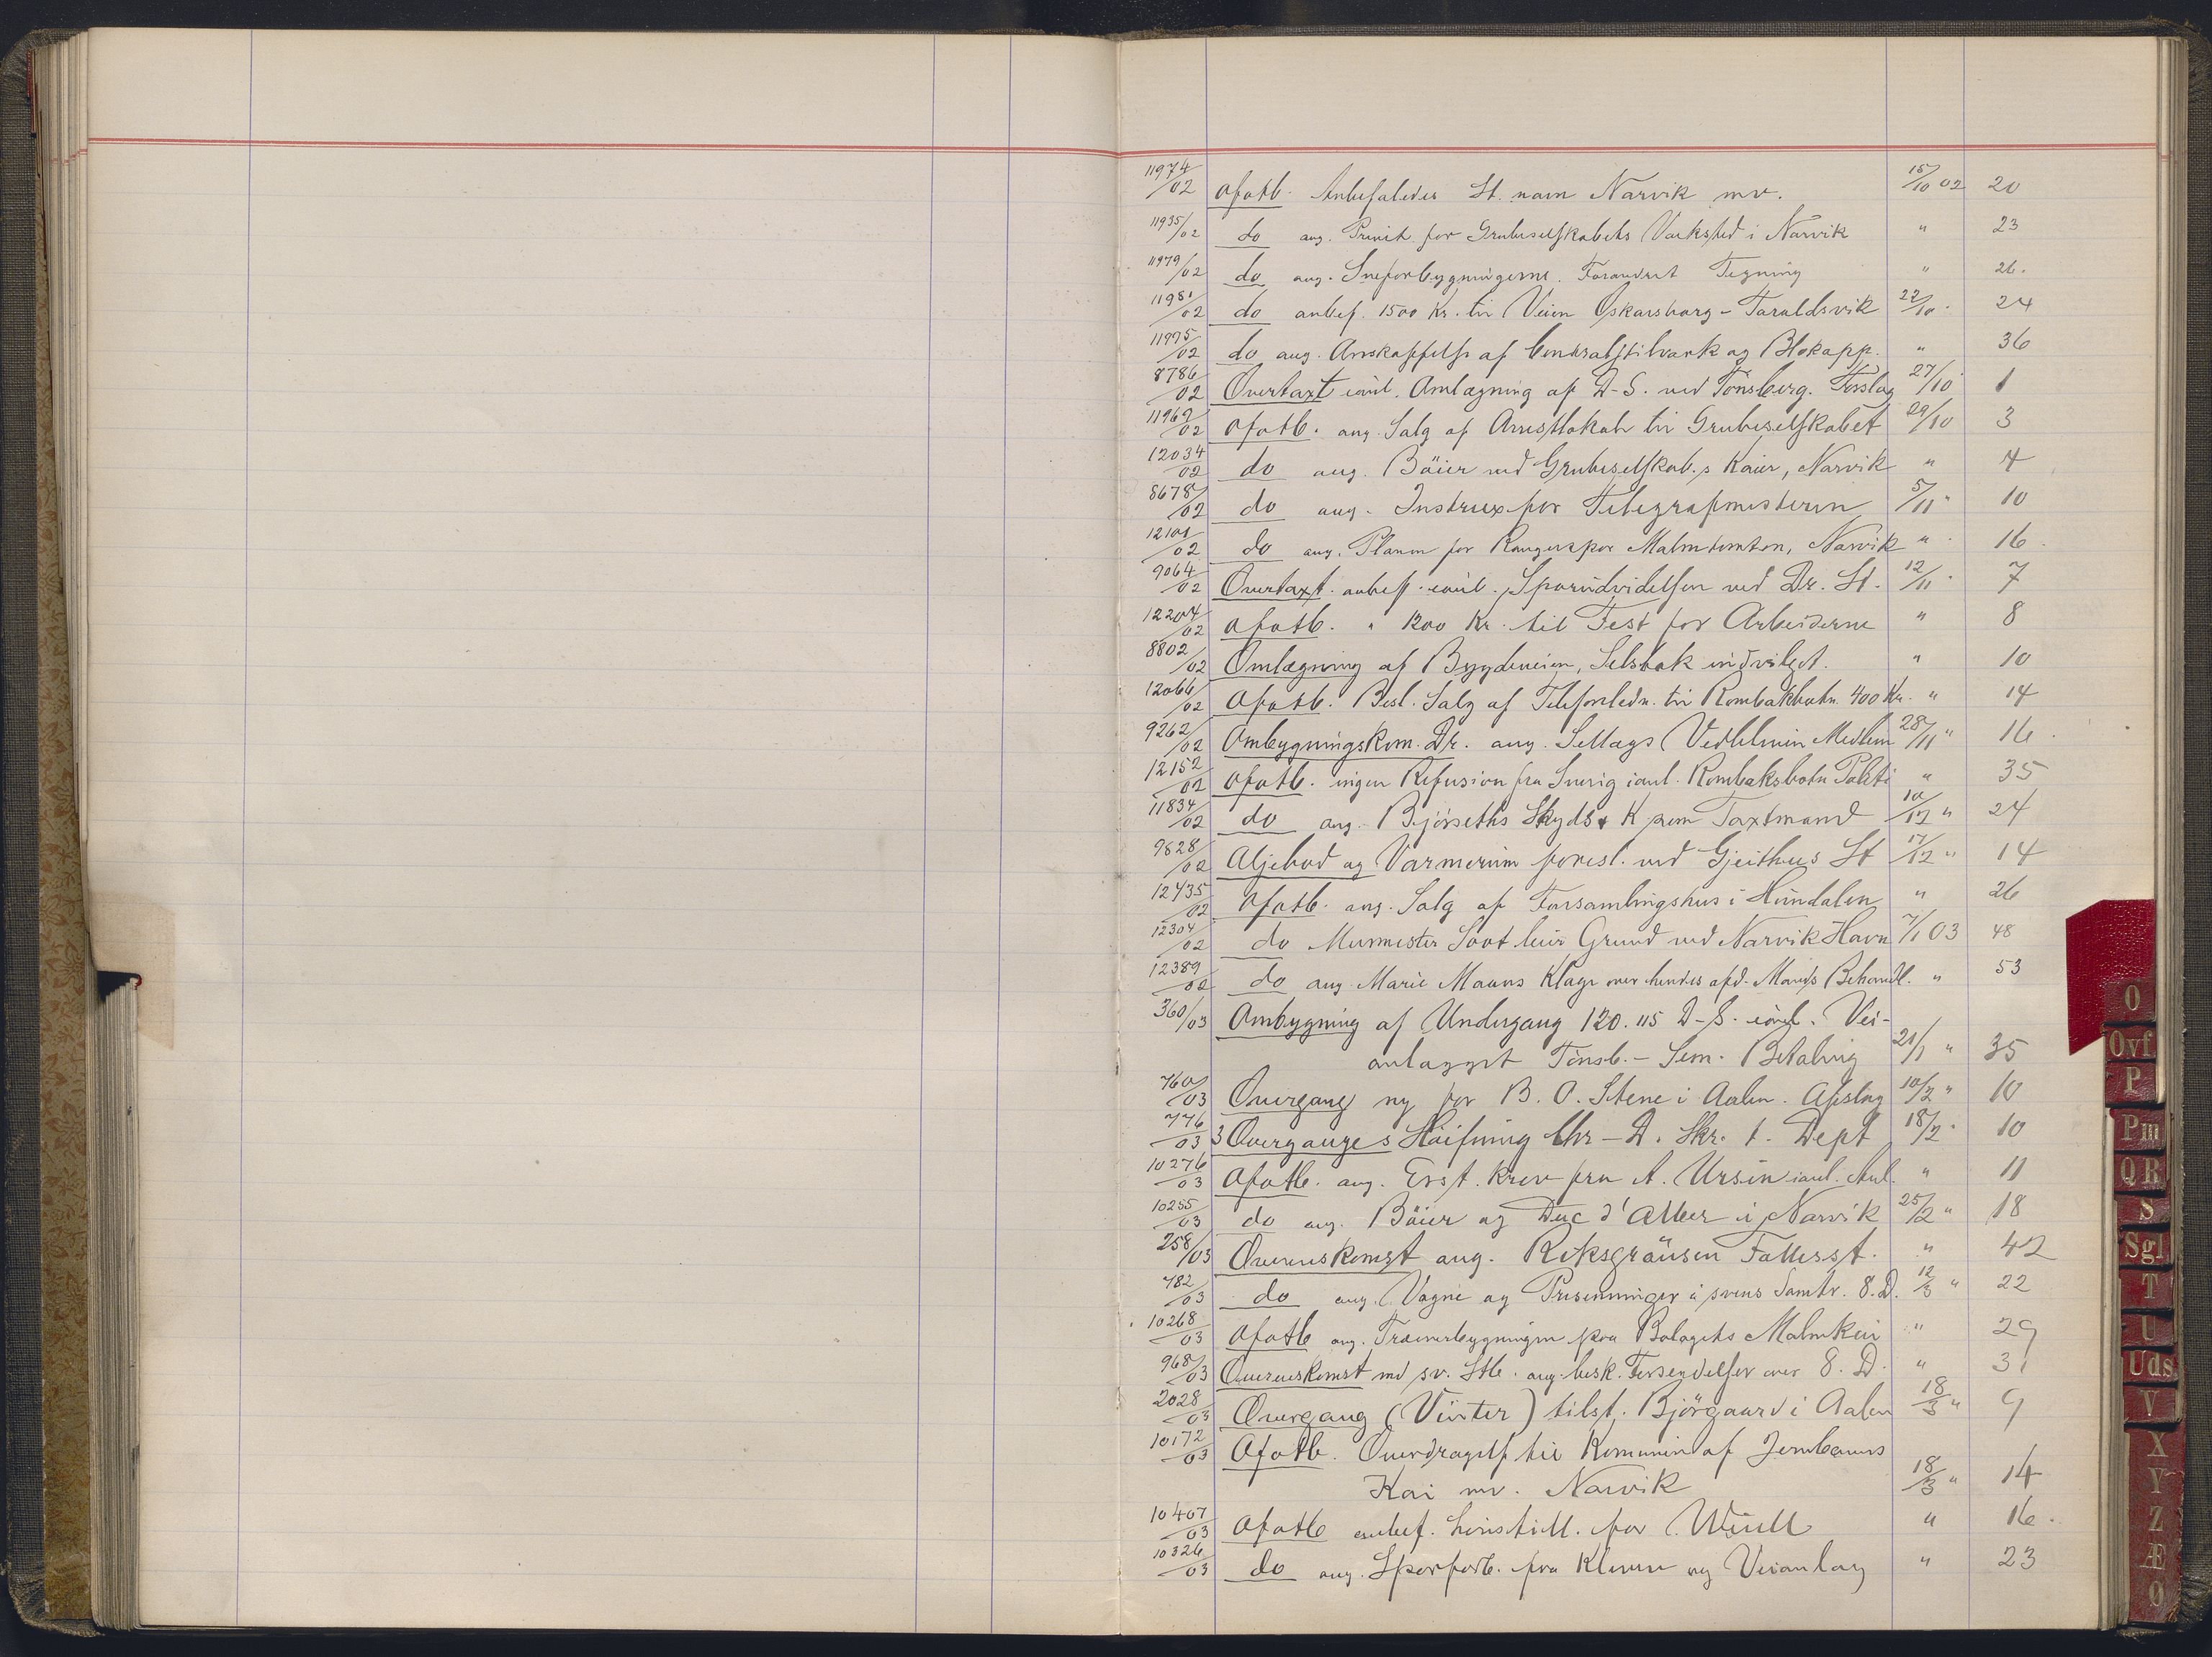 11974/02 Ofotb. Anbefaledes St. navn Narvik mv. 15/10 02 20
11935/02 do ang. Privet for Grubeselskabets Værksted i Narvik " 23
11979/02 do ang. Sneforbygningerne. Forandret Tegning " 26.
11981/02 do anbef. 1500 Kr. til Veien Oskarsborg - Taraldsvik 22/10 " 24
11975/02 do ang. Anskaffelse af Centralstilværk og Blokapp. " 36
8786/02 Overtaxt ianl. Omlægning af D-S. ved Tönsberg. Forslag 27/10 1
11969/02 Ofotb. ang. Salg af Arrestlokale til Grubeselskabet 29/10 3
12034/02 do ang. Böier ved Grubeselskab.s Kaier, Narvik " 4
8678/02 do ang. Instrux for Telegrafmesteren 5/11 " 10
12101/02 do ang. Planen for Rangerspor Malmtomten, Narvik " 16.
9064/02 Overtaxt. anbef. ianl. Sporudvidelsen ved Dr. St. 12/11 " 7
12204/02 Ofotb. " 1200 Kr. til Fest for Arbeiderne " 8
8802/02 Omlægning af Bygdeveien, Selsbak indvilget. " 10
12066/02 Ofotb. Besl. Salg af Telefonledn. til Rombakbotn 400 Kr. " 14
9262/02 Ombygningskom. Dr. ang. Sellags Vedblivin Medlem 28/11 " 16
12152/02 Ofotb. ingen Refusion fra Sverig ianl. Rombaksbotn Politi " 35
11834/02 do ang. Björseths Skyds & K som Taxtmand 10/12 " 24
9828/02 Oljebod og Varmerum foresl. ved Gjeithus St 17/12 " 14
12435/02 Ofotb. ang. Salg af Forsamlingshus i Hundalen " 26
12304/02 do Murmester Soot leier Grund ved Narvik Havn 7/1 03 48
12389/02 do ang. Marie Mauns Klage over hendes afd. Mands Behandl. " 53
360/03 Ombygning af Undergang 120.115 D-S. ianl. Vei-
anlægget Tönsb. - Sem. Betaling 21/1 " 35
760/03 Overgang ny for B. O. Stene i Aalen. Afslag 10/2 " 10
776/03 3 Overganges Slöifning Chr - D. Skr. t. Dept 18/2 " 10
10276/03 Ofotb. ang. Erst. krav fra A. Ursin ianl. Anl. " 11
10255/03 do ang. Böier og Duc d'Alber i Narvik 25/2 " 18
258/03 Overenskomst ang. Riksgränsen Fællesst. " 42
782/03 do ang. Vogne og Presenninger i svens Samtr. 8.D. 12/3 " 22
10268/03 Ofotb ang. Træoverbygningen paa Bolagets Malmkai " 29
968/03 Overenskomst med sv. Stb. ang. besk. Forsendelser over 8. D. " 31
2028/03 Overgang (Vinter) tilst. Björgaard i Aalen 18/3 " 9
10172/03 Ofotb. Overdragelse til Kommunen af Jernbanens
Kai mv. Narvik 18/3 " 14
10407/03 Ofotb anbef. Lönstill. for Wiull " 16.
10326/03 do ang. Sporforb. fra Kleven og Veianlæg " 23
O
Ovf
P
Pm
QR
S
Sgl
T
U
Uds
V
X
Y
Z
Æ
Ø